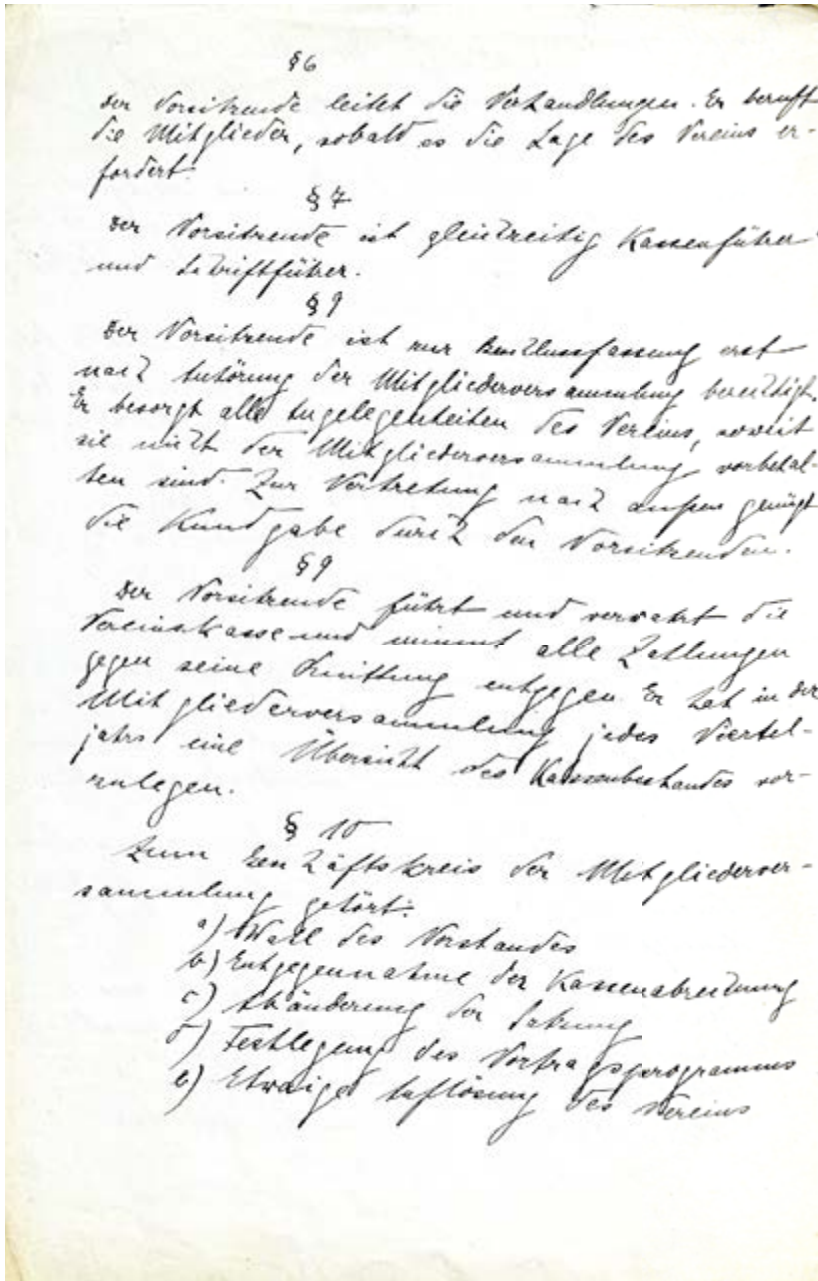 §6
Der Vorsitzende leitet die Verhandlungen. Er beruft
die Mitglieder, sobald es die Lage des Vereins er-
fordert.
§7
Der Vorsitzende ist gleichzeitig Kassenführer
und Schriftführer.
§9
Der Vorsitzende ist zur Beschlussfassung erst
nach Anhörung der Mitgliederversammlung berechtigt.
Er besorgt alle Angelegenheiten des Vereins, soweit
sie nicht der Mitgliederversammlung vorbehal-
ten sind. Zur Vertretung nach außen genügt
die Kundgabe durch den Vorsitzenden.
§9
Der Vorsitzende führt und verwahrt die
Vereinskasse und nimmt alle Zahlungen
gegen seine Quittung entgegen. Er hat in der
Mitgliederversammlung jedes Viertel-
jahrs eine Übersicht des Kassenbestandes vor-
zulegen.
§ 10
Zum Geschäftskreis der Mitgliederver-
sammlung gehört:
a) Wahl des Vorstandes
b) Entgegennahme der Kassenabrechnung
c) Abänderung der Satzung
d) Festlegung des Vortragsprogramms
e) Etwaige Auflösung des Vereins